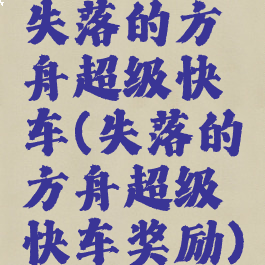 失落的方
舟超级快
车(失落的
方舟超级
快车奖励)